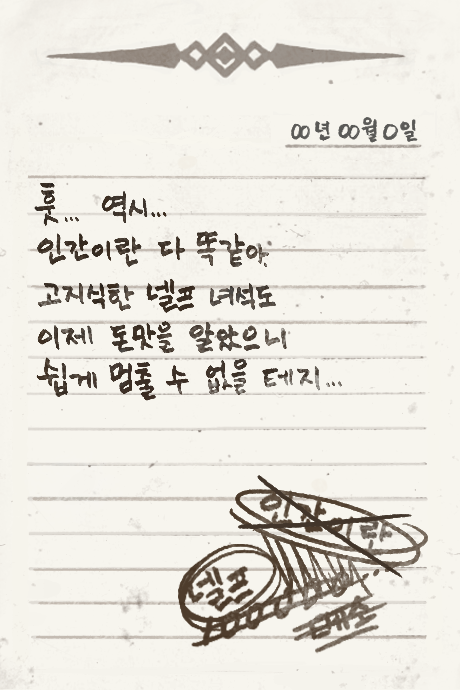 00년 00월 0일
훗... 역시...
인간이란 다 똑같아.
고지식한 넬프 녀석도
이제 돈맛을 알았으니
쉽게 멈출 수 없을 테지...
인간이란
넬프